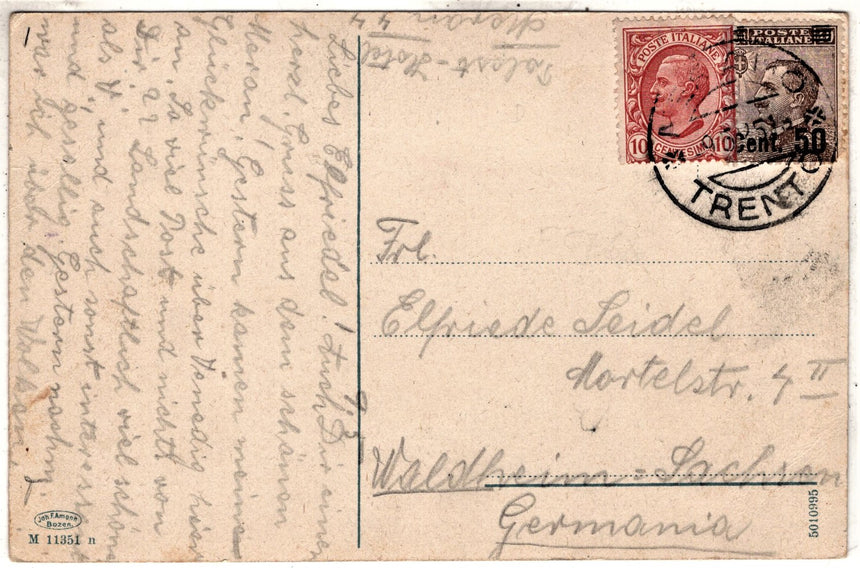 Meran
Palast-Hotel
9.3.
Liebes Elfriedel! Auch Dir einen
herzl. Gruss aus dem schönen
Meran! Gestern kamen meine
Glückwünsche über Venedig hier
an. So viel Post und nichts von
Dir??? Landschaftlich viel schöner
als V. und auch sonst interessant
und gesellig. Gestern nachm.
war ich über den Wolken.
POSTE ITALIANE
10 CENTESIMI 10
POSTE
ITALIANE
Cent. 50
MERANO
TRENTO
Frl.
Elfriede Seidel
Martelstr. 4 II
Waldheim-Sachsen
Germania
Joh. F. Amonn
Bozen.
M 11351 n
5010995